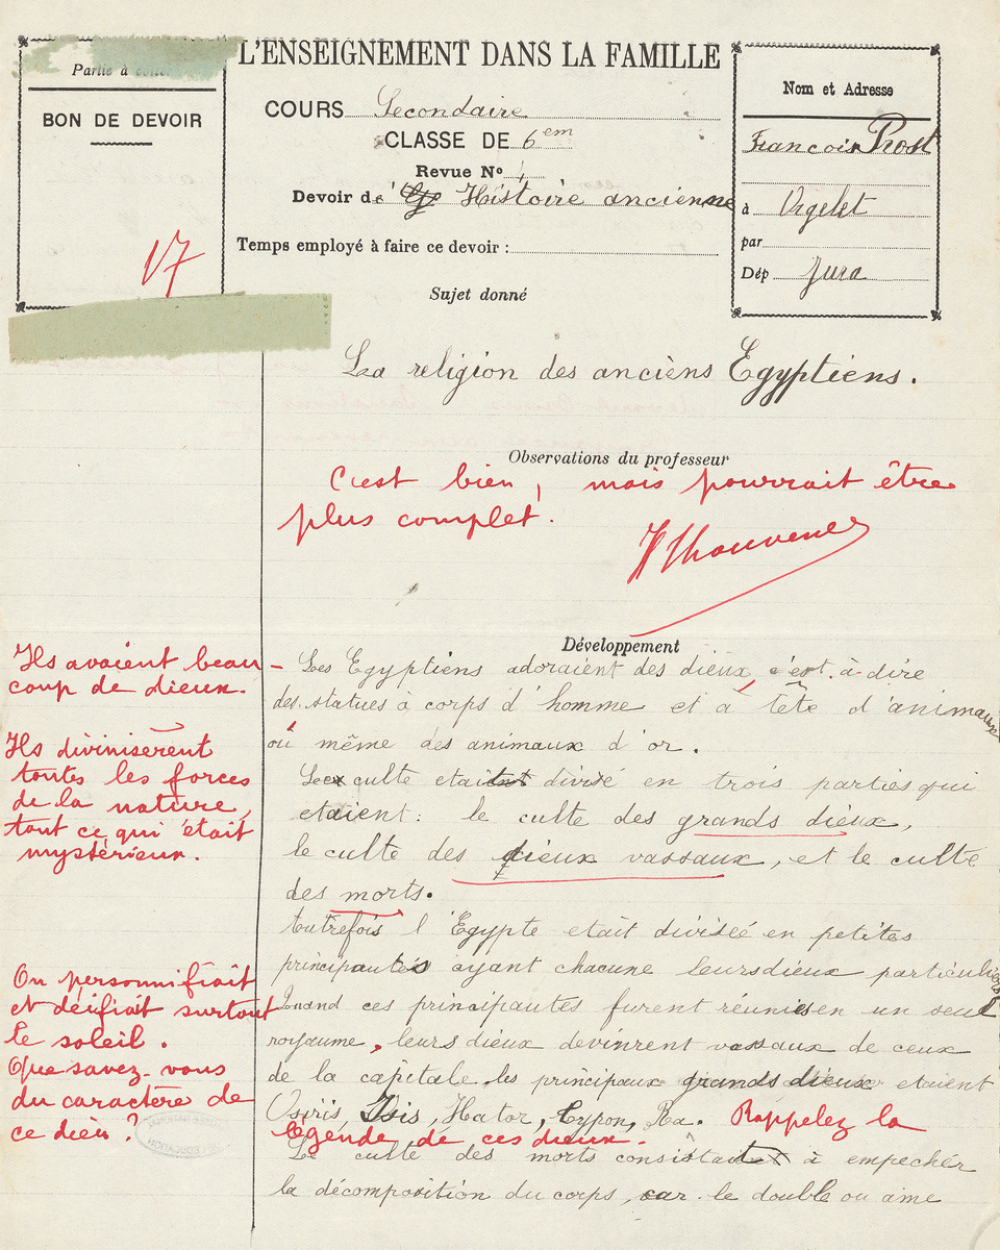 Partie à coller
L'ENSEIGNEMENT DANS LA FAMILLE
BON DE DEVOIR
17
COURS Secondaire
CLASSE DE 6em
Revue No 1
Devoir de Histoire ancienne
Temps employé à faire ce devoir :
Nom et Adresse
Francois Prost
à Orgelet
par
Dép Jura
Sujet donné
La religion des anciens Egyptiens.
Observations du professeur
C'est bien, mais pourrait être
plus complet.
Développement
Ils avaient beau-
coup de dieux.
Ils divinisèrent
toutes les forces
de la nature,
tout ce qui était
mystérieux.
On personnifiait
et déifiait surtout
le soleil.
Que savez-vous
du caractère de
ce dieu ?
Les Egyptiens adoraient des dieux, c'est à dire
des statues à corps d'homme et à tête d'animaux
où même des animaux d'or.
Le culte etait divisé en trois parties qui
etaient : le culte des grands dieux,
le culte des dieux vassaux, et le culte
des morts.
Autrefois l'Egypte etait divisée en petites
principautés ayant chacune leurs dieux particuliers
Quand ces principautés furent réunies en un seul
royaume, leurs dieux devinrent vassaux de ceux
de la capitale. les principaux grands dieux etaient
Osiris, Isis, Hator, Typon, Ra. Rappelez la
légende de ces dieux.
Le culte des morts consistait à empecher
la décomposition du corps, car le double ou ame